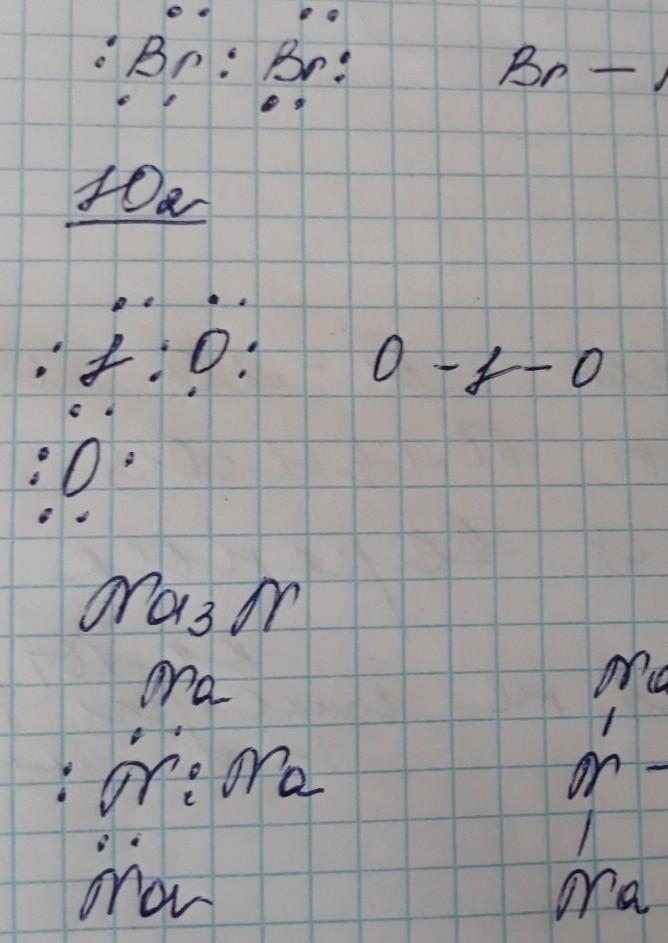 :Br:Br: Br —
IO₂
:I:O: O - I - O
:O·
Na₃N
Na
:N:Na Na
N -
Na Na